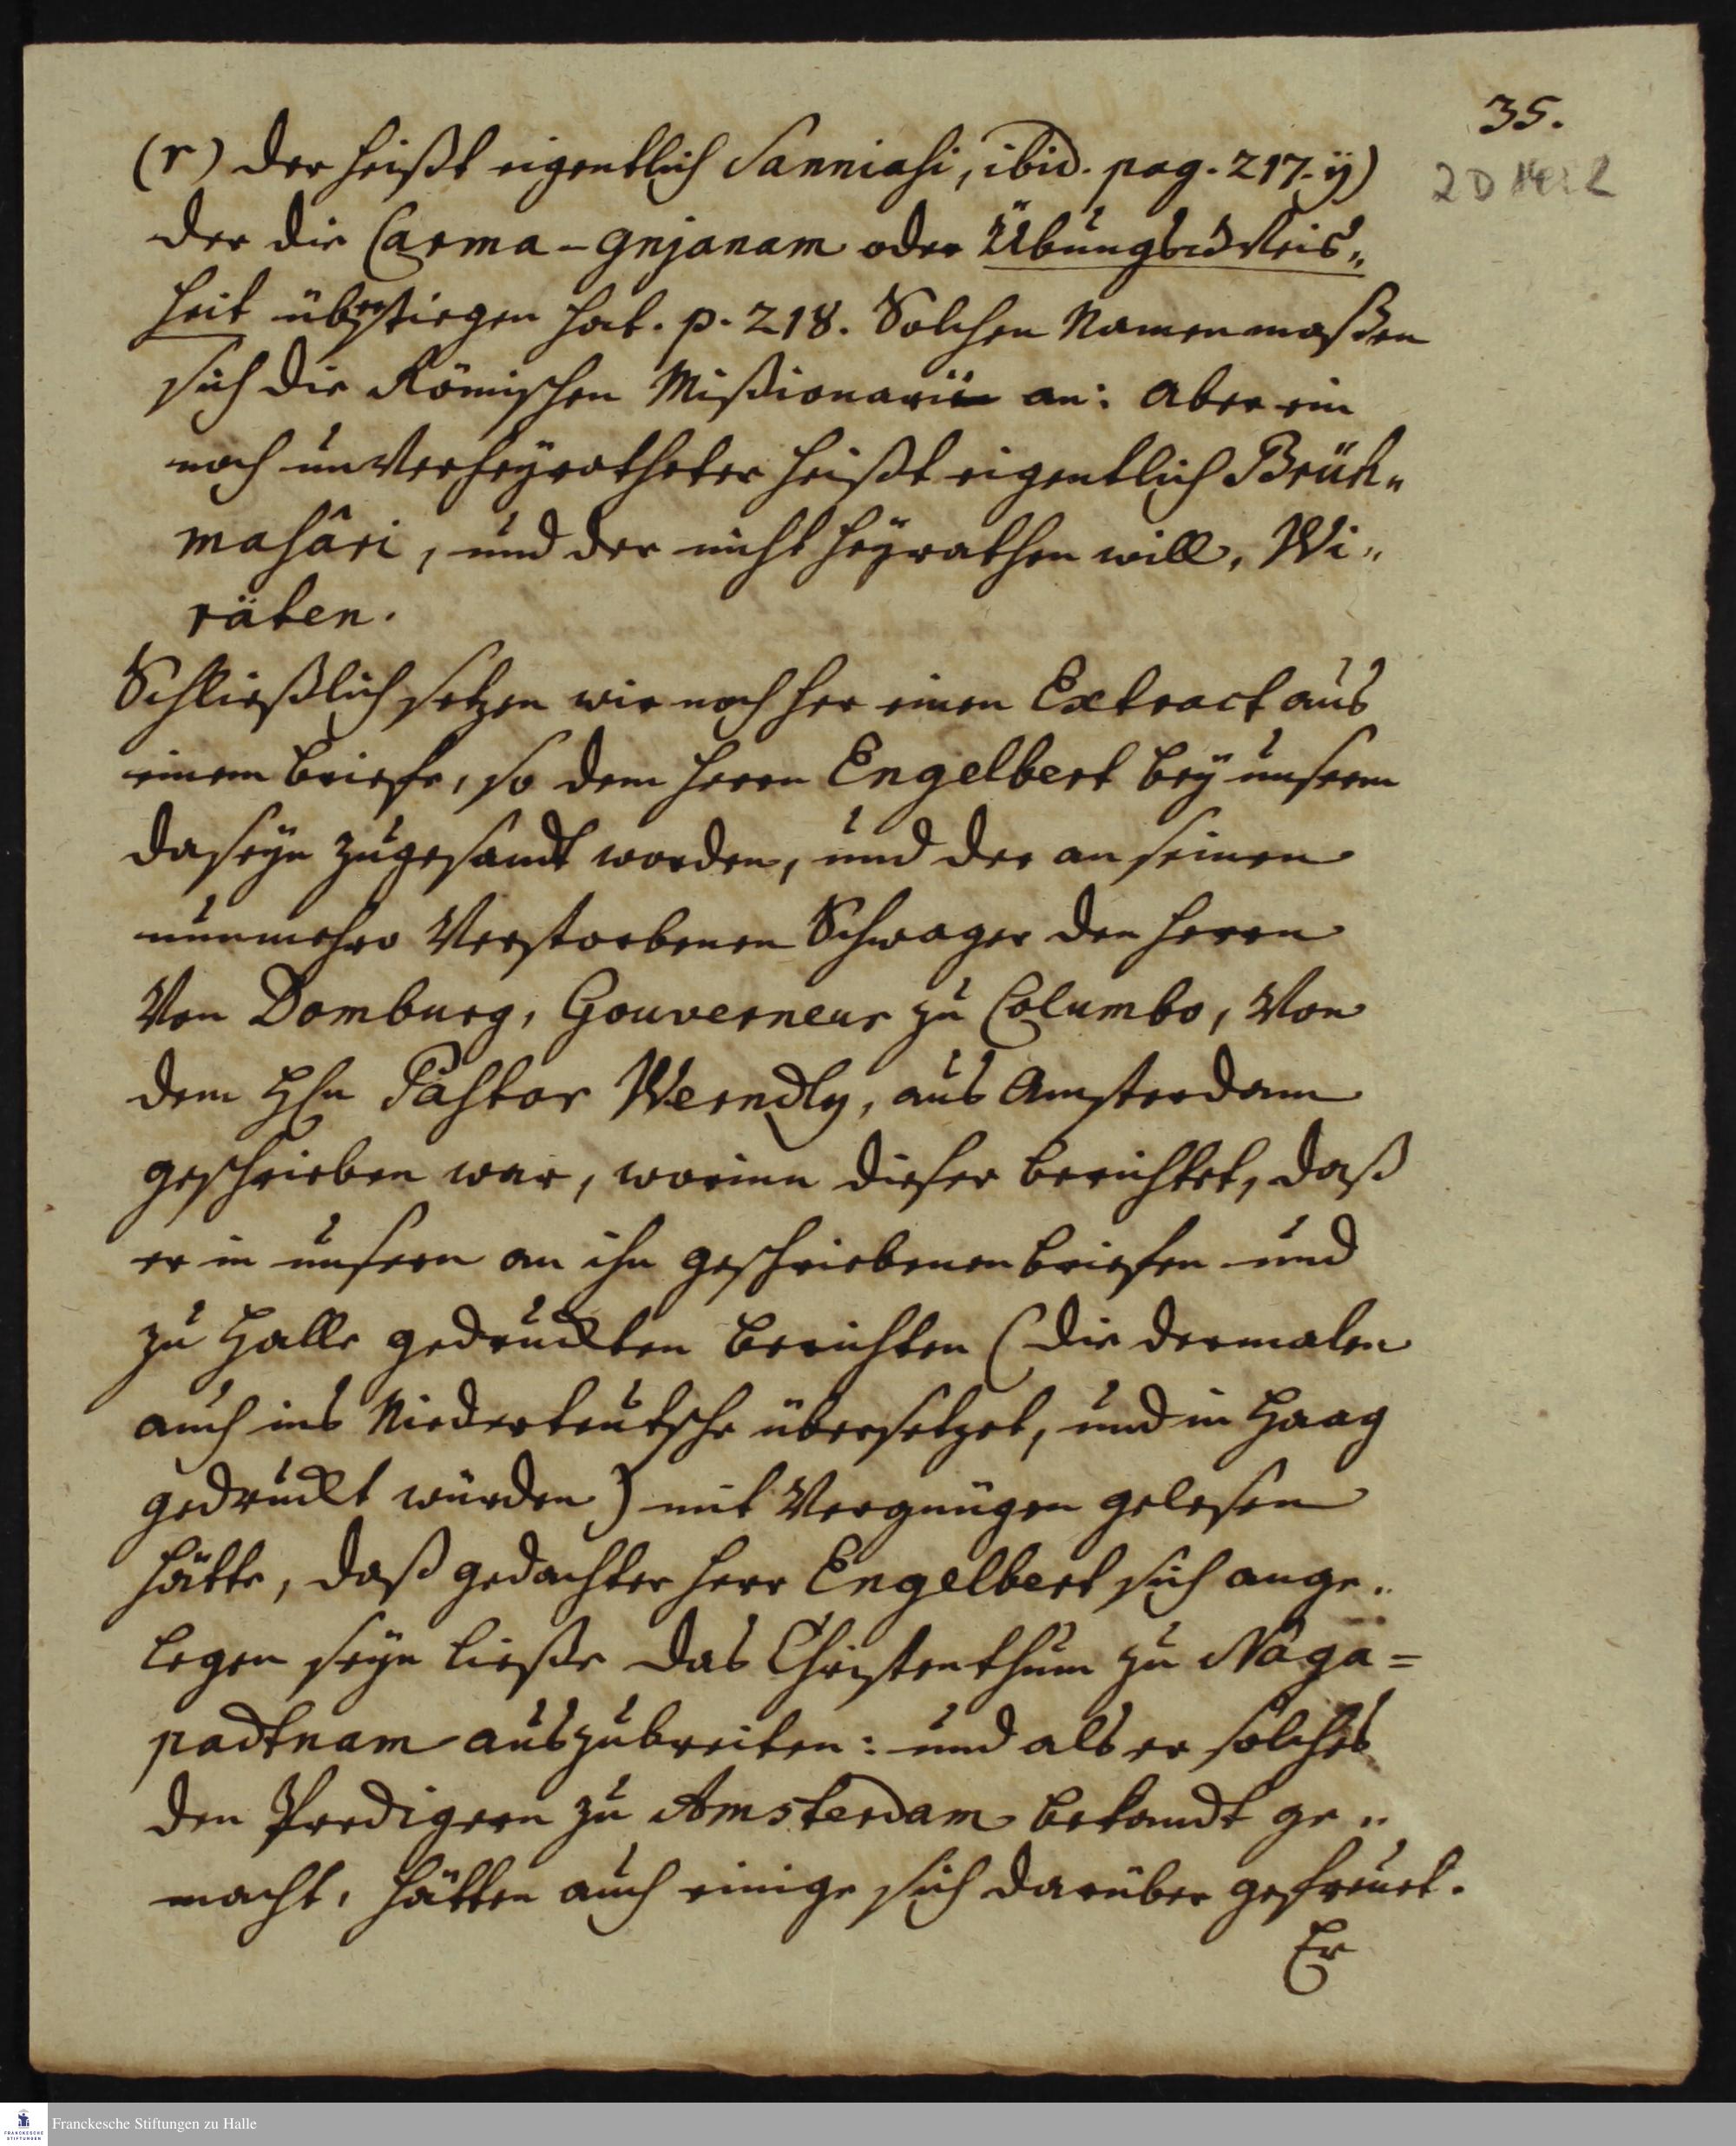 35.
(r) der heißt eigentlich Sanniasi, ibid. pag. 217. ÿ)
der die Carma-gnjanam oder Übungs Weis„
heit überstiegen hat. p. 218. Solchen Namen maßen
sich die Römischen Mißionarii an: aber ein
noch unverheyratheter heißt eigentlich Brüh„
masâri, und der nicht heyrathen will, Wi„
räten.
Schließlich setzen wir noch her einen Extract aus
einem briefe, so dem Herrn Engelbert bey unserm
daseyn zugesandt worden, und der an seinen
nunmehro Verstorbenen Schwager den Herrn
Von Domburg, Gouverneur zu Columbo, Von
dem Hℓn Pastor Werndly, aus Amsterdam
geschrieben war, worinn dieser berichtet, daß
er in unsern an ihn geschriebenen briefen und
zu Halle gedruckten berichten (die dermalen
auch ins Niederteutsche übersetzet, und in Haag
gedruckt würden) mit Vergnügen gelesen
hätte, daß gedachter Herr Engelbert sich ange„
legen seyn ließe das Christenthum zu Nâga=
padtnam auszubreiten: und als er solches
den Predigern zu Amsterdam bekandt ge„
macht, hätten auch einige sich darüber gefreuet.
Er
Franckesche Stiftungen zu Halle
FRANCKESCHE
STIFTUNGEN